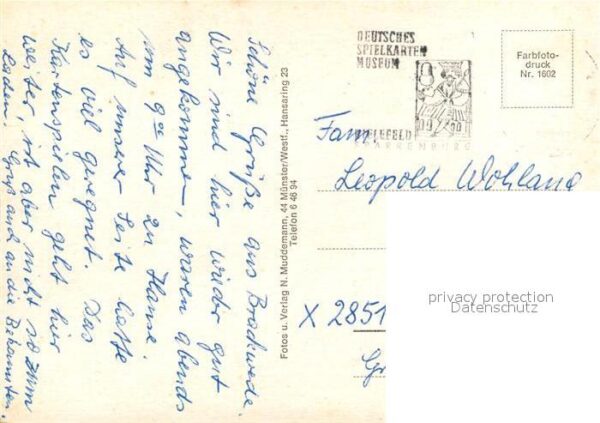 Schöne Grüße aus Brackwede.
Wir sind hier wieder gut
angekommen, waren abends
um 9 00 Uhr zu Hause.
Auf unserer Seite hatte
es viel geregnet. Das
Kartenspielen geht hier
weiter, ist aber nicht so zum
Laden. Gruß auch an die Bekannten.
Fotos u. Verlag N. Muddemann, 44 Münster/Westf., Hansaring 23
Telefon 6 46 94
DEUTSCHES
SPIELKARTEN
MUSEUM
BIELEFELD
SPARRENBURG
Farbfoto-
druck
Nr. 1602
Fam.
Leopold Wohland
X 2851
privacy protection
Datenschutz